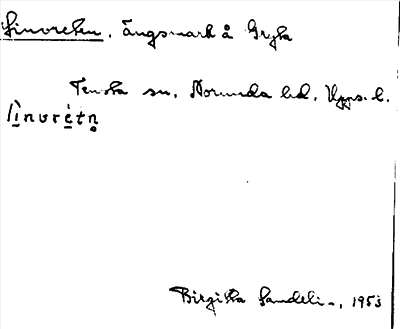 Linvreten, Ängsmark å Gryta
Tensta sn, Norunda hd. Upps. l.
lìnvrétn̥
Birgitta Sandelin, 1953